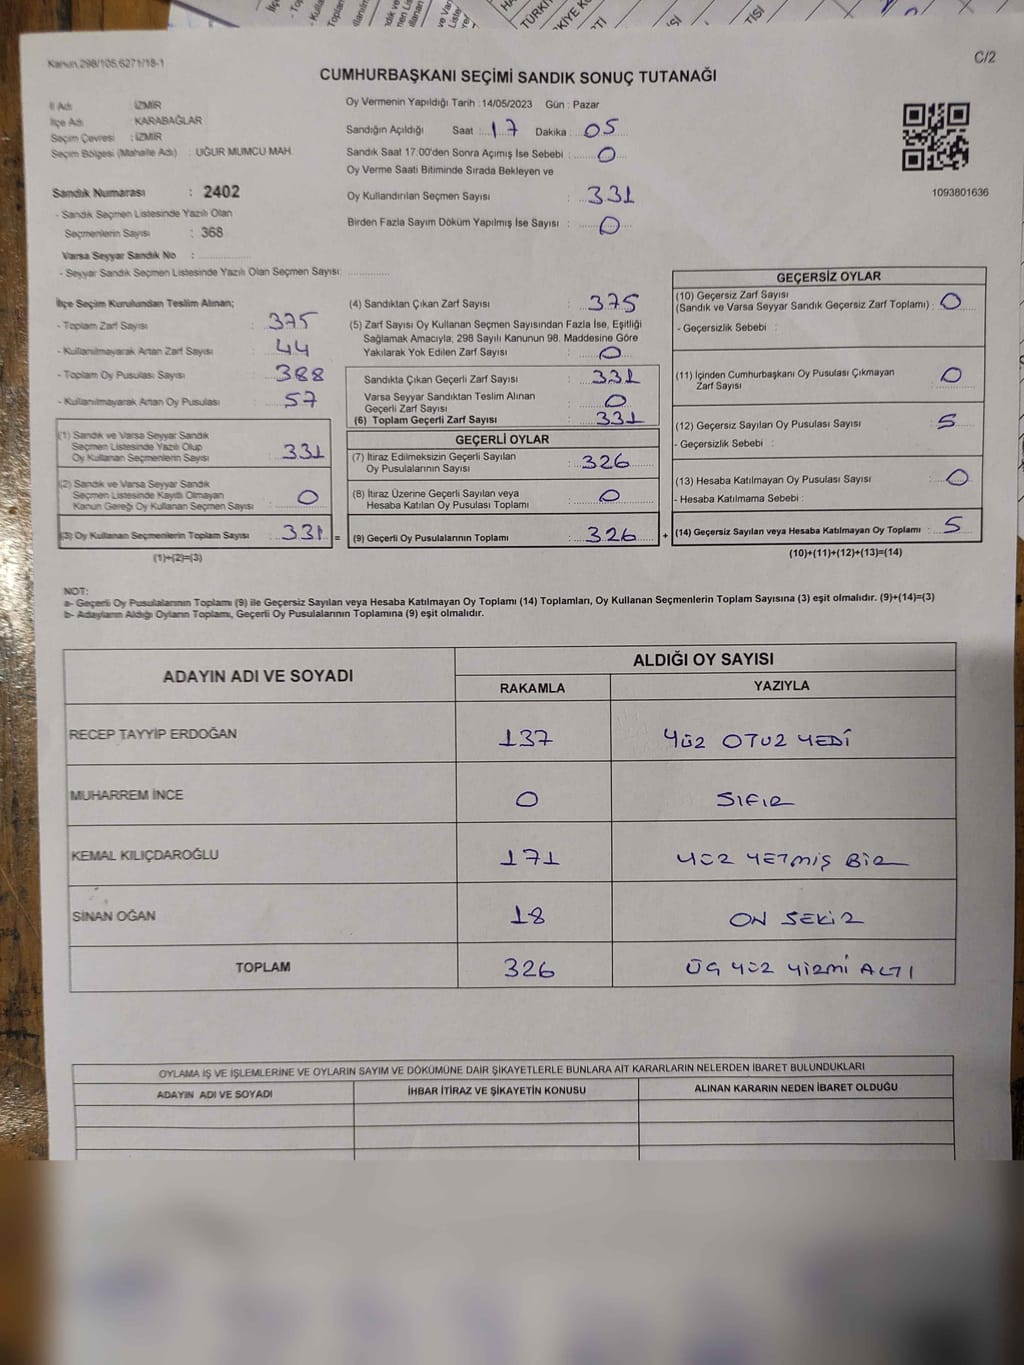 Kanun.298/105,6271/18-1
C/2
CUMHURBAŞKANI SEÇİMİ SANDIK SONUÇ TUTANAĞI
İl Adı : İZMİR
İlçe Adı : KARABAĞLAR
Seçim Çevresi : İZMİR
Seçim Bölgesi (Mahalle Adı) : UĞUR MUMCU MAH.
Oy Vermenin Yapıldığı Tarih : 14/05/2023 Gün : Pazar
Sandığın Açıldığı Saat : 17 Dakika : 05
Sandık Saat 17:00'den Sonra Açılmış İse Sebebi : 0
Oy Verme Saati Bitiminde Sırada Bekleyen ve
Oy Kullandırılan Seçmen Sayısı : 331
Birden Fazla Sayım Döküm Yapılmış İse Sayısı : 0
1093801636
Sandık Numarası : 2402
- Sandık Seçmen Listesinde Yazılı Olan
Seçmenlerin Sayısı : 368
Varsa Seyyar Sandık No :
- Seyyar Sandık Seçmen Listesinde Yazılı Olan Seçmen Sayısı:
İlçe Seçim Kurulundan Teslim Alınan;
- Toplam Zarf Sayısı : 375
- Kullanılmayarak Artan Zarf Sayısı : 44
- Toplam Oy Pusulası Sayısı : 388
- Kullanılmayarak Artan Oy Pusulası : 57
(1) Sandık ve Varsa Seyyar Sandık
Seçmen Listesinde Yazılı Olup
Oy Kullanan Seçmenlerin Sayısı : 331
(2) Sandık ve Varsa Seyyar Sandık
Seçmen Listesinde Kayıtlı Olmayan
Kanun Gereği Oy Kullanan Seçmen Sayısı : 0
(3) Oy Kullanan Seçmenlerin Toplam Sayısı : 331 =
(1)+(2)=(3)
(4) Sandıktan Çıkan Zarf Sayısı : 375
(5) Zarf Sayısı Oy Kullanan Seçmen Sayısından Fazla İse, Eşitliği
Sağlamak Amacıyla; 298 Sayılı Kanunun 98. Maddesine Göre
Yakılarak Yok Edilen Zarf Sayısı : 0
Sandıkta Çıkan Geçerli Zarf Sayısı : 331
Varsa Seyyar Sandıktan Teslim Alınan
Geçerli Zarf Sayısı : 0
(6) Toplam Geçerli Zarf Sayısı : 331
GEÇERLİ OYLAR
(7) İtiraz Edilmeksizin Geçerli Sayılan
Oy Pusulalarının Sayısı : 326
(8) İtiraz Üzerine Geçerli Sayılan veya
Hesaba Katılan Oy Pusulası Toplamı : 0
(9) Geçerli Oy Pusulalarının Toplamı : 326 +
GEÇERSİZ OYLAR
(10) Geçersiz Zarf Sayısı
(Sandık ve Varsa Seyyar Sandık Geçersiz Zarf Toplamı) : 0
- Geçersizlik Sebebi :
(11) İçinden Cumhurbaşkanı Oy Pusulası Çıkmayan
Zarf Sayısı : 0
(12) Geçersiz Sayılan Oy Pusulası Sayısı : 5
- Geçersizlik Sebebi :
(13) Hesaba Katılmayan Oy Pusulası Sayısı : 0
- Hesaba Katılmama Sebebi :
(14) Geçersiz Sayılan veya Hesaba Katılmayan Oy Toplamı : 5
(10)+(11)+(12)+(13)=(14)
NOT:
a- Geçerli Oy Pusulalarının Toplamı (9) ile Geçersiz Sayılan veya Hesaba Katılmayan Oy Toplamı (14) Toplamları, Oy Kullanan Seçmenlerin Toplam Sayısına (3) eşit olmalıdır. (9)+(14)=(3)
b- Adayların Aldığı Oyların Toplamı, Geçerli Oy Pusulalarının Toplamına (9) eşit olmalıdır.
ADAYIN ADI VE SOYADI
ALDIĞI OY SAYISI
RAKAMLA YAZIYLA
RECEP TAYYİP ERDOĞAN 137 YÜZ OTUZ YEDİ
MUHARREM İNCE 0 SIFIR
KEMAL KILIÇDAROĞLU 171 YÜZ YETMİŞ BİR
SİNAN OĞAN 18 ON SEKİZ
TOPLAM 326 ÜÇ YÜZ YİRMİ ALTI
OYLAMA İŞ VE İŞLEMLERİNE VE OYLARIN SAYIM VE DÖKÜMÜNE DAİR ŞİKAYETLERLE BUNLARA AİT KARARLARIN NELERDEN İBARET BULUNDUKLARI
ADAYIN ADI VE SOYADI İHBAR İTİRAZ VE ŞİKAYETİN KONUSU ALINAN KARARIN NEDEN İBARET OLDUĞU